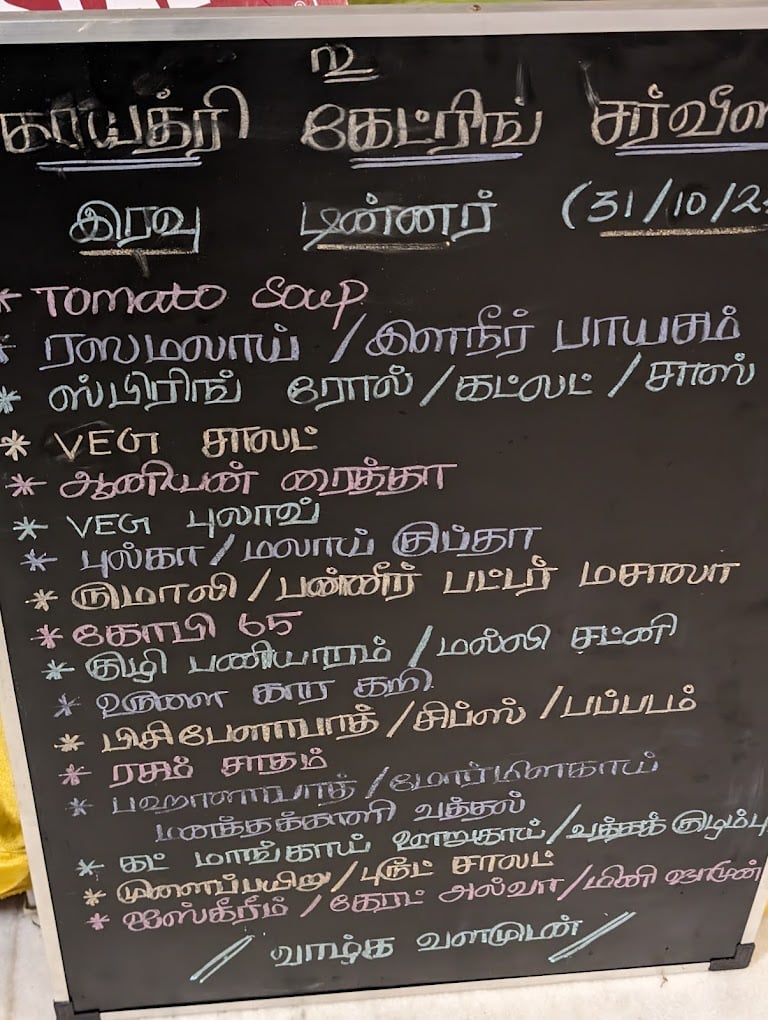 உ
காயத்ரி கேட்ரிங் சர்வீஸ
இரவு டின்னர் (31/10/2
* Tomato Soup
* ரஸமலாய் / இளநீர் பாயசம்
* ஸ்பிரிங் ரோல் / கட்லட் / சாஸ்
* VEG சாலட்
* ஆனியன் ரைத்தா
* VEG புலாவ்
* புல்கா / மலாய் குப்தா
* ருமாலி / பன்னீர் பட்டர் மசாலா
* கோபி 65
* குழி பணியாரம் / மல்லி சட்னி
* உருளை கார கறி
* பிசிபேளாபாத் / சிப்ஸ் / பப்படம்
* ரசம் சாதம்
* பஹாளாபாத் / மோர்மிளகாய்
மனத்தக்காணி வத்தல்
* கட் மாங்காய் ஊறுகாய் / வத்தக் குழம்பு
* முளைப்பயிறு / புரூட் சாலட்
* ஐஸ்கிரீம் / கேரட் அல்வா / மினி ஜாமுன்
// வாழ்க வளமுடன் //